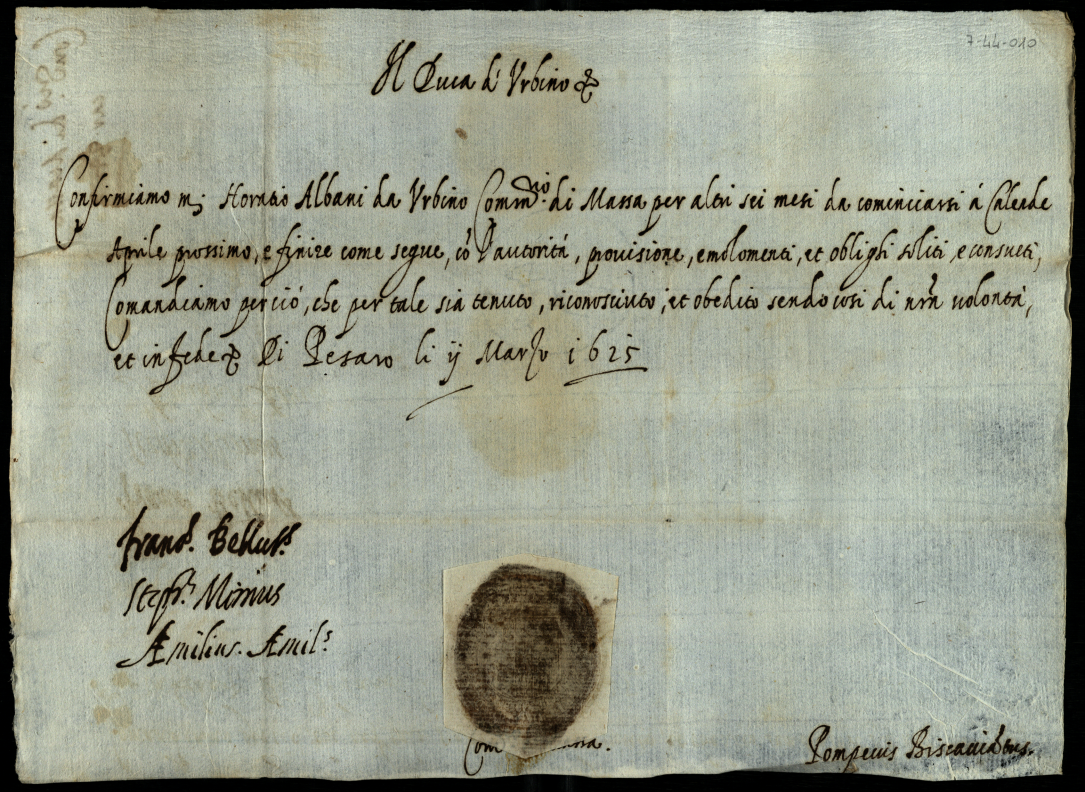 7-44-010
Il Duca d'Urbino &
Confirmiamo m; Horatio Albani da Urbino Comm.rio di Massa per altri sei mesi da cominciarsi á Cal.ede
Aprile prossimo, e finire come segue, cō l'autoritá, provisione, emolomenti, et oblighi soliti e consueti,
Comandiamo perció, che per tale sia tenuto, riconosciuto, et obedito sendo cosi di nr̃a volontá,
et in fede & Di Pesaro li ij Marzo 1625
Franc.s
Steph.s
Æmilius. Æmil.s
Pompeius